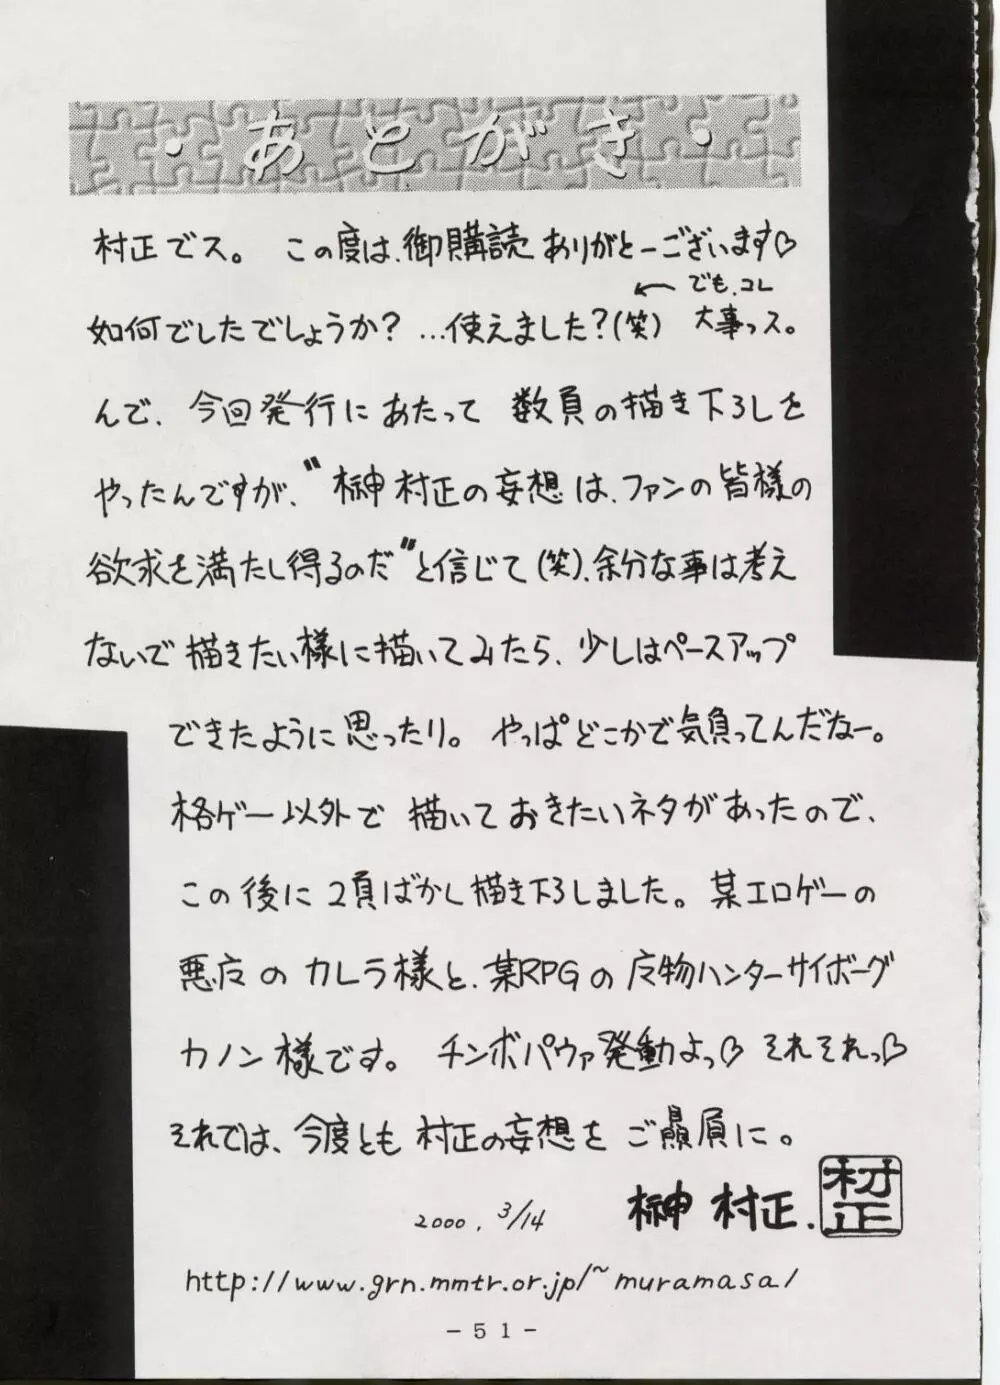 ・あとがき・
村正でス。 この度は、御購読ありがとーございます♡
でも、コレ
如何でしたでしょうか？ …使えました？(笑) ← 大事っス。
んで、今回発行にあたって 数頁の描き下ろしを
やったんですが、〝榊村正の妄想は、ファンの皆様の
欲求を満たし得るのだ〟と信じて(笑)、余分な事は考え
ないで描きたい様に描いてみたら、少しはペースアップ
できたように思ったり。 やっぱどこかで気負ってんだなー。
格ゲー以外で 描いておきたいネタがあったので、
この後に 2頁ばかし描き下ろしました。某エロゲーの
悪役の カレラ様と、某RPGの 魔物ハンターサイボーグ
カノン様です。 チンボパウァ発動よっ♡ それそれっ♡
それでは、今度とも 村正の妄想を ご贔屓に。
2000. 3/14 榊 村正.
村正
http://www.grn.mmtr.or.jp/~muramasa/
－５１－